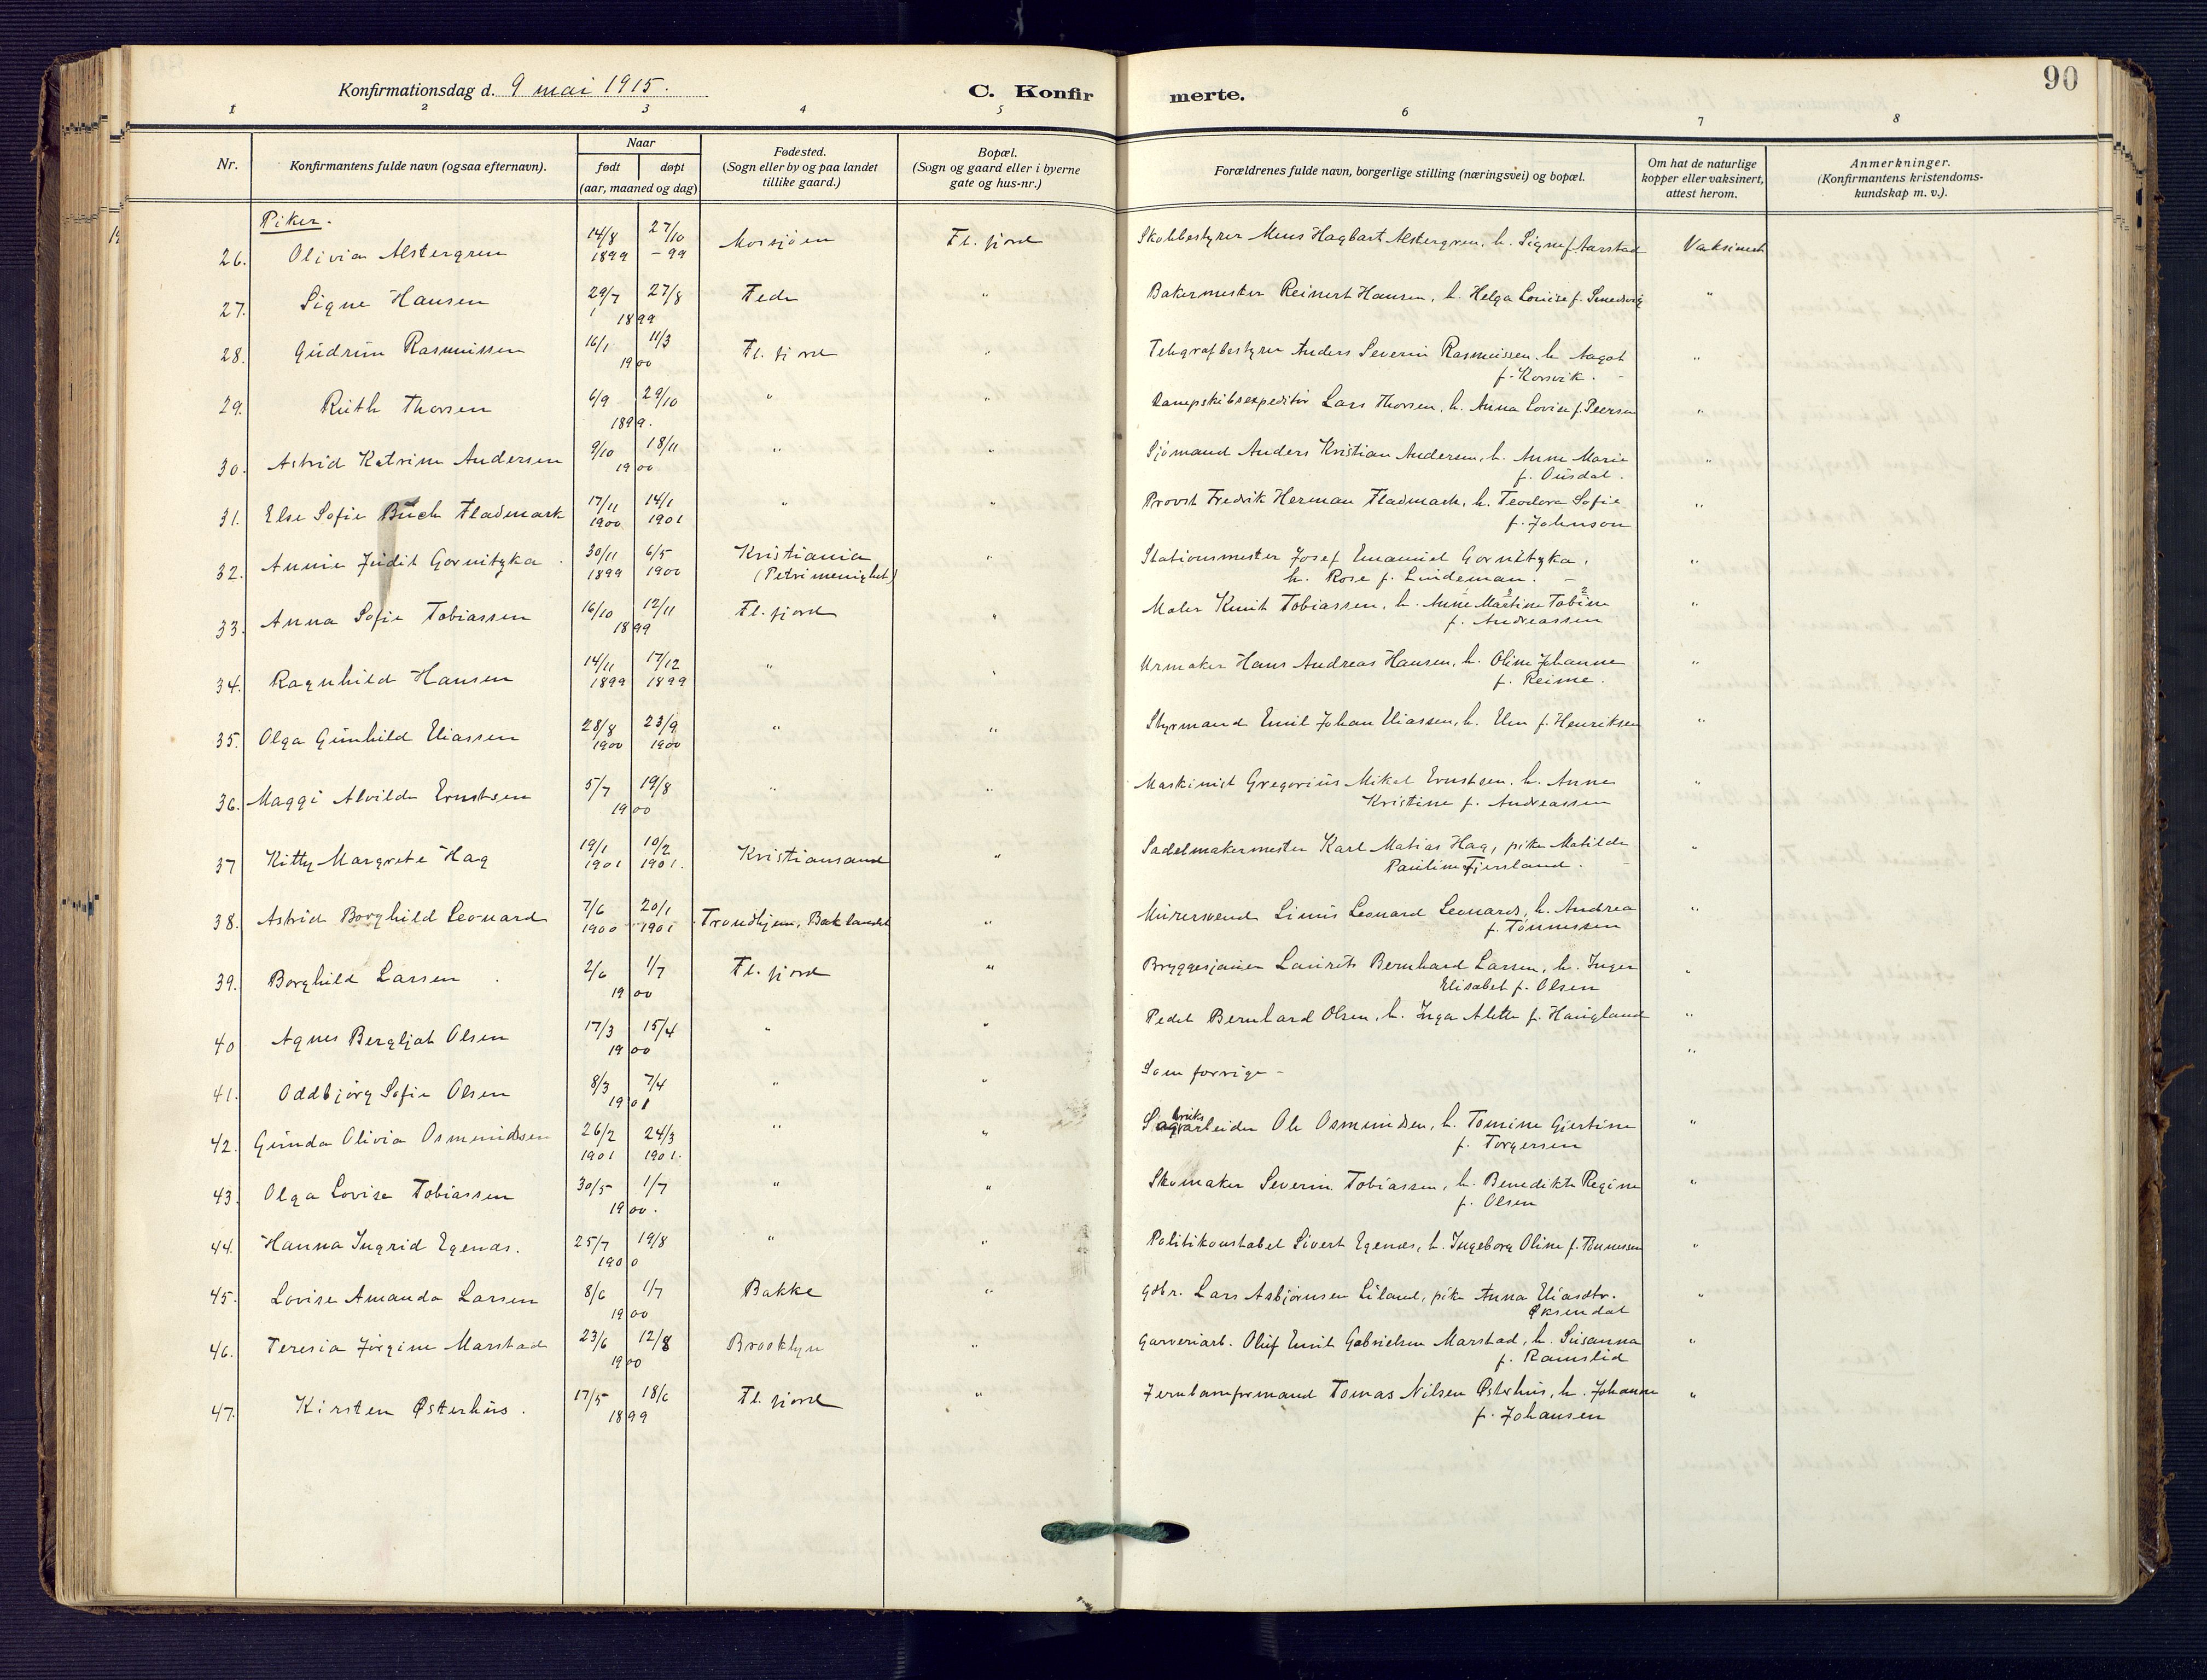 90
Konfirmationsdag d. 9 mai 1915.
C. Konfir merte.
1 2 3 4 5 6 7 8
Nr.
Konfirmantens fulde navn (ogsaa efternavn).
Naar
født døpt
(aar, maaned og dag)
Fødested.
(Sogn eller by og paa landet
tillike gaard.)
Bopæl.
(Sogn og gaard eller i byerne
gate og hus-nr.)
Forældrenes fulde navn, borgerlige stilling (næringsvei) og bopæl.
Om hat de naturlige
kopper eller vaksinert,
attest herom.
Anmerkninger.
(Konfirmantens kristendoms-
kundskap m. v.).
Piker.
26. Olivia Alstergren 14/8 1899 27/10 - 99 Mosjøen Fl. fjord Skolebestyrer Mens Hagbart Alstergren, h. Signe f. Aarstad Vaksinert
27. Signe Hansen 29/7 27/8 1899 Feda " Bakermester Reinert Hansen, h. Helga Louise f. Smedvig "
28. Gudrun Rasmussen 16/1 11/3 1900 Fl. fjord " Telegrafbestyrer Anders Severin Rasmussen, h. Aagot
f. Korsvik. "
29. Ruth Thorsen 6/9 29/10 1899. " " Dampskibsexpeditør Lars Thorsen, h. Anna Lovise f. Peersen "
30. Astrid Katrine Andersen 9/10 18/11 1900 " " Sjømand Anders Kristian Andersen, h. Anne Marie
f. Ousdal. "
31. Else Sofie Buch Fladmark 17/11 1900 14/1 1901 " " Provst Fredrik Herman Fladmark, h. Teodora Sofie
f. Johnson "
32. Annie Judit Gornitzka 30/11 1899 6/5 1900 Kristiania
(Petri menighet) " Stationsmester Josef Emanuel Gornitzka,
h. Rose f. Lindeman. "
33. Anna Sofie Tobiassen 16/10 12/11 1899 Fl. fjord " Maler Knut Tobiassen, h. Anne Martine Tobine
f. Andreassen "
34. Ragnhild Hansen 14/11 1899 17/12 1899 " " Urmaker Hans Andreas Hansen, h. Oline Johanne
f. Reime. "
35. Olga Gunhild Eliassen 28/8 1900 23/9 1900 " " Styrmand Emil Johan Eliassen, h. Elen f. Henriksen "
36. Maggi Alvilde Ernstsen 5/7 19/8 1900 " " Maskinist Gregorius Mikal Ernstsen, h. Anne
Kristine f. Andreassen "
37 Kitty Margrete Hag 19/1 1901 10/2 1901. Kristiansand " Sadelmakermester Karl Matias Hag, pike Matilde
Pauline Fjersland. "
38. Astrid Borghild Leonard 7/6 1900 20/1 1901 Trondhjem, Baklandet " Murersvend Linus Leonard Leonards, h. Andrea
f. Tönnessen "
39. Borghild Larsen 2/6 1/7 1900 Fl. fjord " Bryggesjauer Laurits Bernhard Larsen, h. Inger
Elisabet f. Olsen "
40 Agnes Bergljot Olsen 17/3 15/4 1900 " " Pedel Bernhard Olsen, h. Inga Alette f. Haugland "
41. Oddbjörg Sofie Olsen 8/3 7/4 1901 " " Som forrige - "
42. Gunda Olivia Osmundsen 26/2 1901 24/3 1901. " " arbeider Ole Osmundsen, h. Tomine Gjertine
f. Torgersen "
43. Olga Lovise Tobiassen 30/5 1/7 1900. " " Skomaker Severin Tobiassen, h. Benedikte Regine
f. Olsen "
44. Hanna Ingrid Egenæs. 25/7 19/8 1900 " " Politikonstabel Sivert Egenæs, h. Ingeborg Oline f. Tönnessen "
45. Lovise Amanda Larsen 8/6 1/7 1900 Bakke " Gdbr. Lars Asbjørnsen Liland, pike Anna Eliasdtr.
Øksendal "
46. Teresia Jörgine Marstad 23/6 12/8 1900 Brooklyn " Garveriarb. Oluf Emil Gabrielsen Marstad, h. Susanna
f. Ramslid "
47. Kirsten Østerhus. 17/5 18/6 1899 Fl. fjord " Jernbaneformand Tomas Nilsen Østerhus, h. Johanne
f. Johansen "